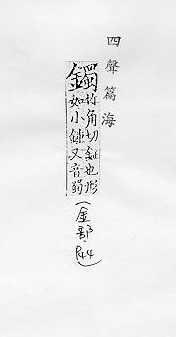 四聲篇海
鐲竹角切鉦也形
如小鐘又音蜀
(金部 P44)